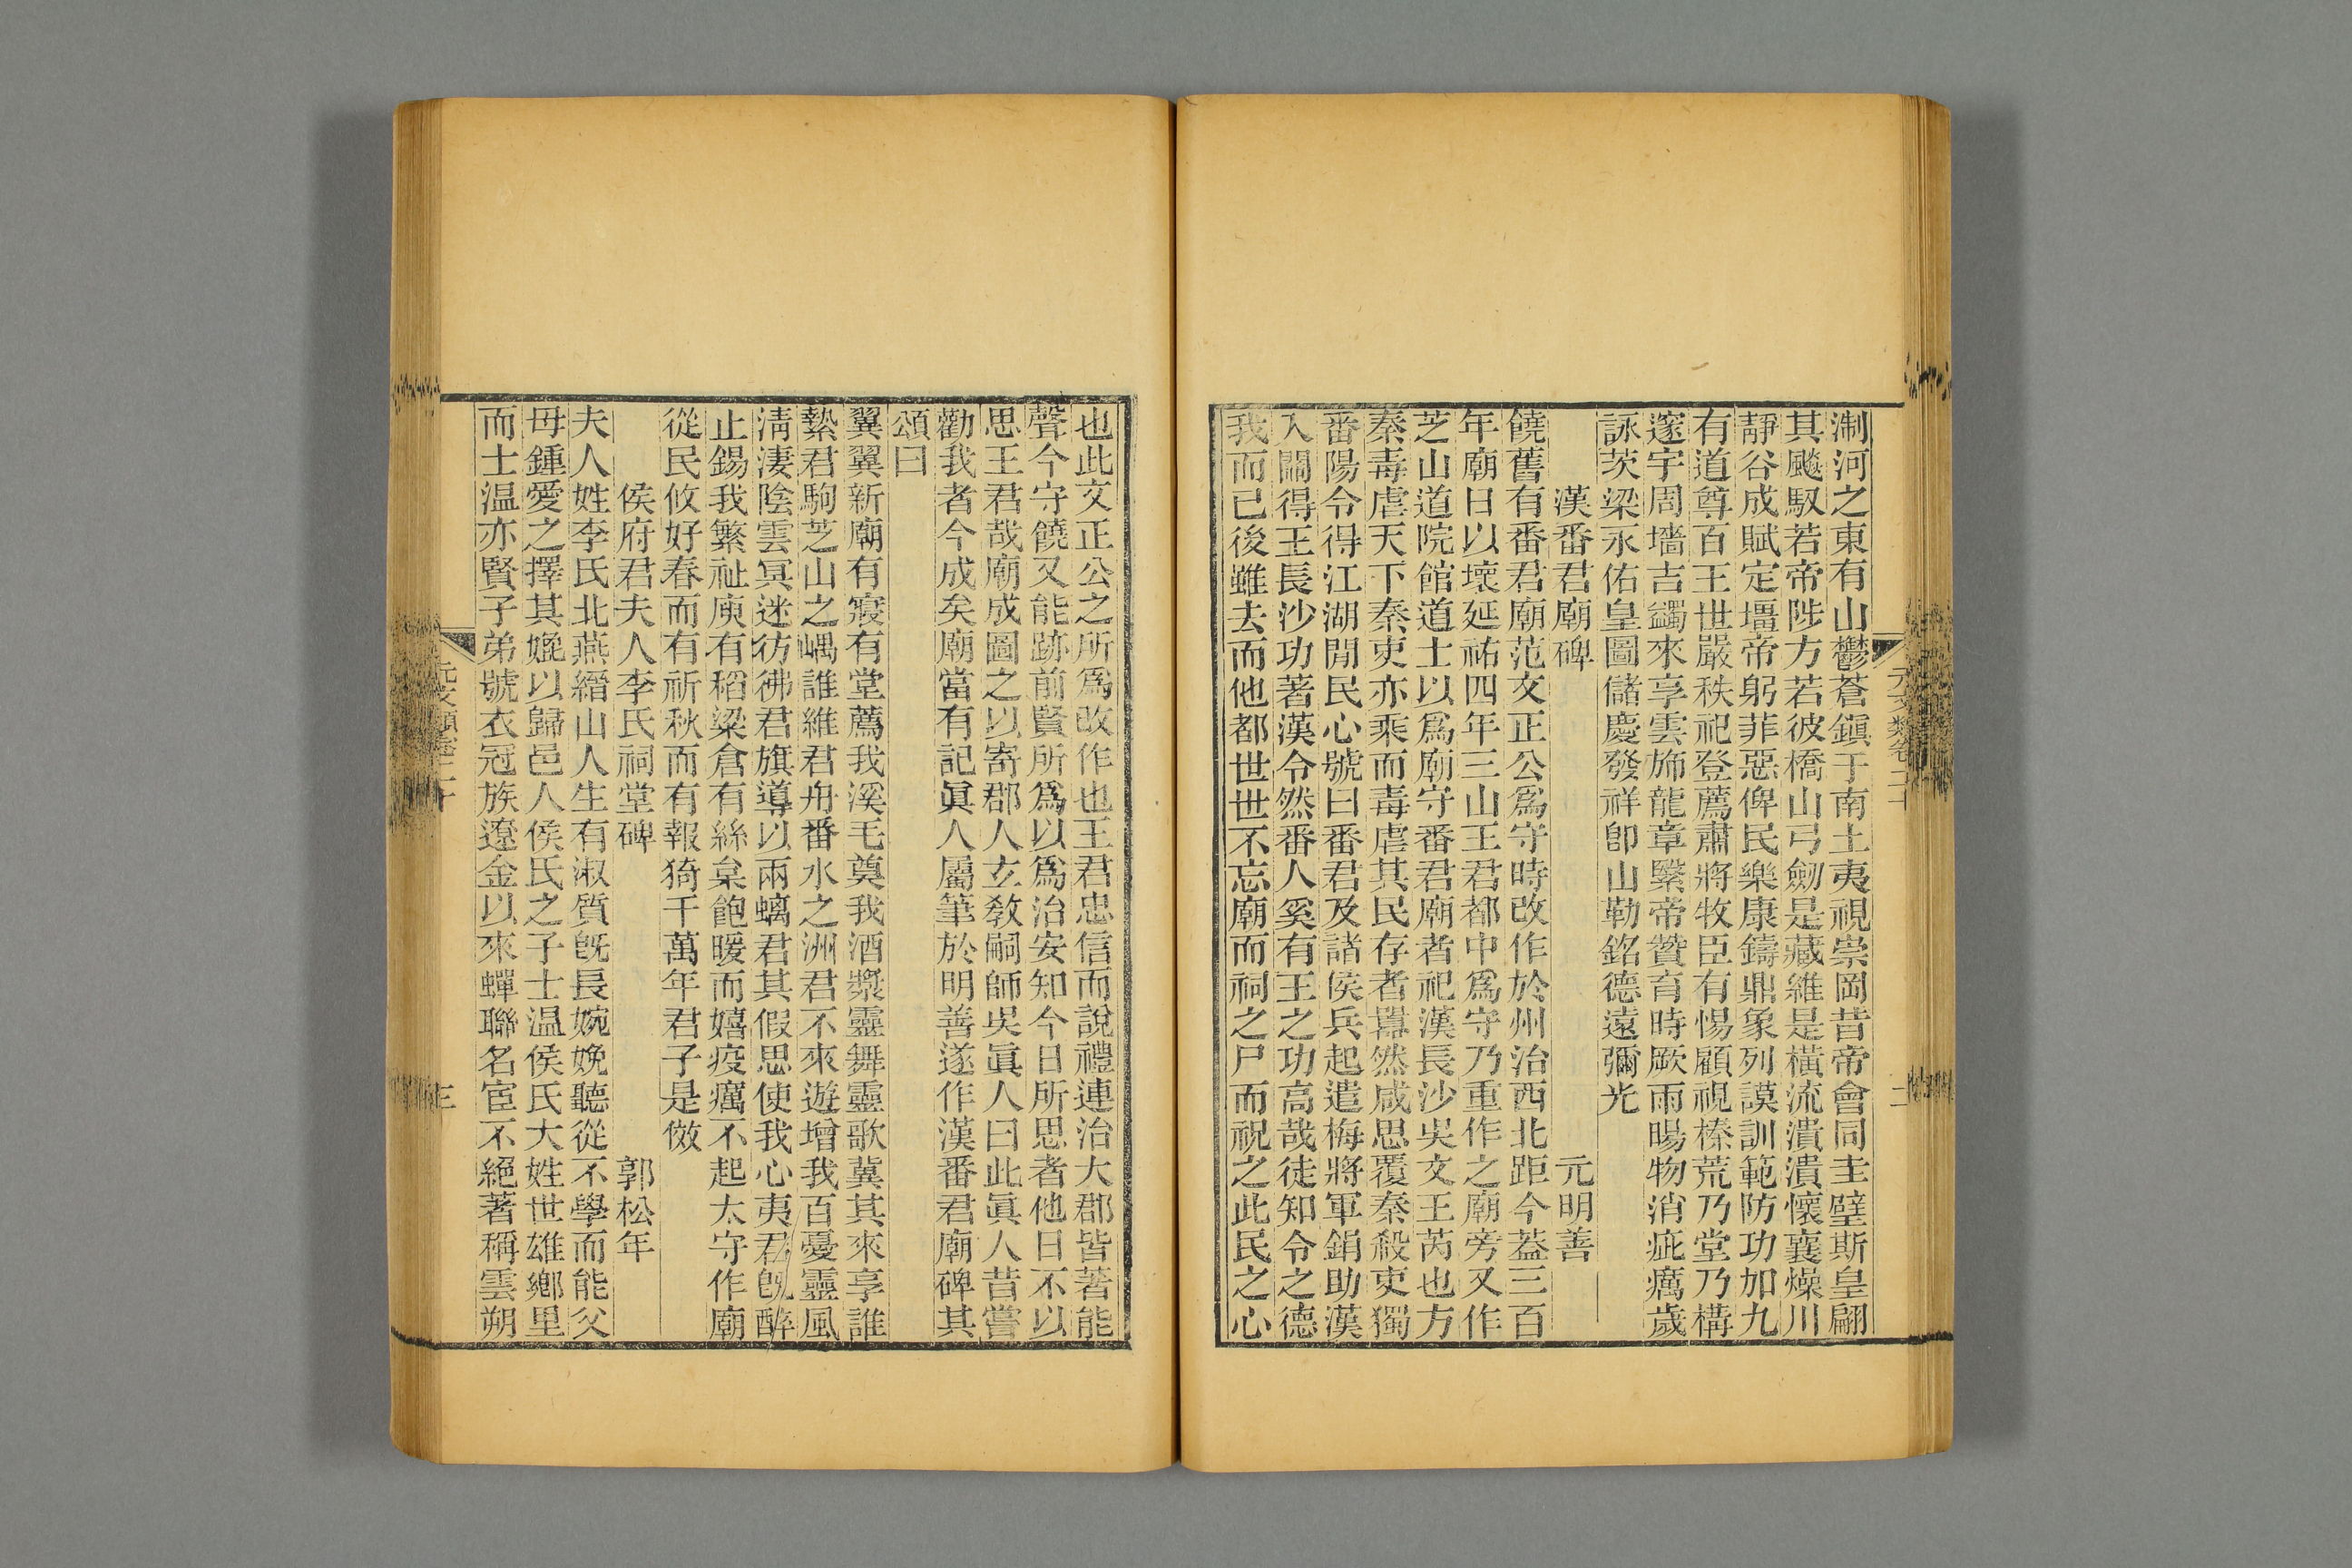 淛河之東有山鬱蒼鎭于南土夷視崇岡昔帝會同圭璧斯皇翩
其飇馭若帝陟方若彼橋山弓劒是藏維是橫流潰潰懷襄燥川
靜谷成賦定壃帝躬菲惡俾民樂康鑄鼎象列謨訓範防功加九
有道尊百王世嚴秩祀登薦肅將牧臣有惕顧視榛荒乃堂乃構
邃宇周墻吉蠲來享雲斾龍章緊帝贊育時厥雨暘物消疵癘歲
詠茨梁永佑皇圖儲慶發祥卽山勒銘德遠彌光
漢番君廟碑 元明善
饒舊有番君廟范文正公爲守時改作於州治西北距今葢三百
年廟日以壞延祐四年三山王君都中爲守乃重作之廟旁又作
芝山道院館道士以爲廟守番君廟者祀漢長沙吳文王芮也方
秦毒虐天下秦吏亦乘而毒虐其民存者嚣然咸思覆秦殺吏獨
番陽令得江湖閒民心號曰番君及諸侯兵起遣梅將軍鋗助漢
入關得王長沙功著漢令然番人奚有王之功高哉徒知令之德
我而已後雖去而他都世世不忘廟而祠之尸而祝之此民之心
元文類卷二十 二
也此文正公之所爲改作也王君忠信而說禮連治大郡皆著能
聲今守饒又能跡前賢所爲以爲治安知今日所思者他日不以
思王君哉廟成圖之以寄郡人玄敎嗣師吳眞人曰此眞人昔嘗
勸我者今成矣廟當有記眞人屬筆於明善遂作漢番君廟碑其
頌曰
翼翼新廟有寢有堂薦我溪毛奠我酒漿靈舞靈歌冀其來享誰
縶君駒芝山之嵎誰維君舟番水之洲君不來遊增我百憂靈風
淸淒陰雲冥迷彷彿君旗導以兩螭君其假思使我心夷君旣醉
止錫我繁祉庾有稻梁倉有絲枲飽暖而嬉疫癘不起太守作廟
從民攸好春而有祈秋而有報猗千萬年君子是傚
侯府君夫人李氏祠堂碑 郭松年
夫人姓李氏北燕縉山人生有淑質旣長婉娩聽從不學而能父
母鍾愛之擇其嬔以歸邑人侯氏之子士温侯氏大姓世雄鄉里
而士温亦賢子弟號衣冠族遼金以來蟬聯名宦不絕著稱雲朔
元文類卷二十 三